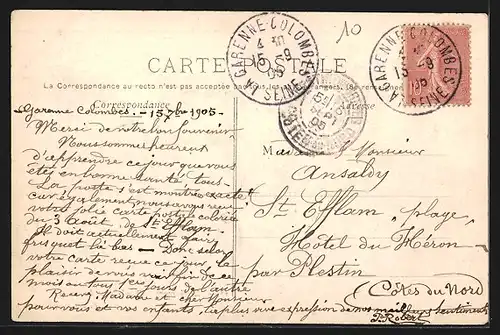 10
LA GARENNE-COLOMBES
4 30
15 -9
05
SEINE
LA GARENNE-COLOMBES
15 -9
05
SEINE
CARTE POSTALE
La Correspondance au recto n'est pas acceptée
Correspondance
Adresse
La Garenne Colombes. - 15 7bre 1905 -
Merci de votre bon souvenir
Nous sommes heureux
d'apprendre ce jour que vous
êtes en bonne santé tous -
La poste s'est montrée exacte
car également nous avons reçu
votre jolie carte postale coloriée
du 3 Août, de St Efflam.
Il doit actuellement faire
frisquet là-bas - Donc selon
votre carte reçue ce jour, le
plaisir de vous voir
mois
Recevez Madame et cher Monsieur
pour vous et vos enfants, la plus vive expression de nos meilleurs sentiments
Robert
Madame Monsieur
Ansaldy
St Efflam "plage"
Hôtel du Héron
par Plestin
(Côtes du Nord)